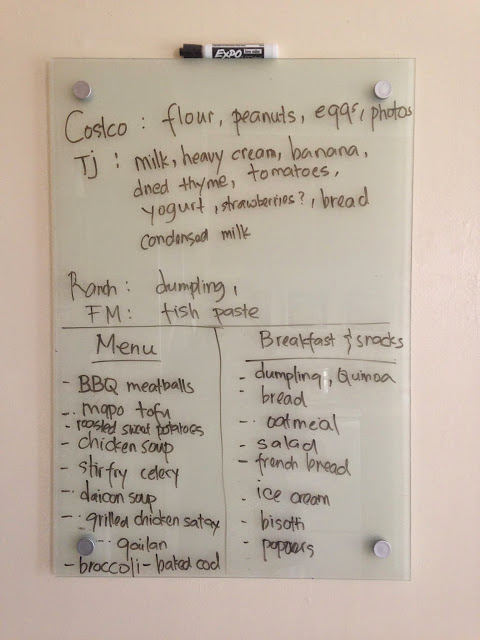 EXPO
Costco : flour, peanuts, eggs, photos
Tj : milk, heavy cream, banana,
dried thyme, tomatoes,
yogurt, strawberries?, bread
condensed milk
Ranch: dumpling,
FM: fish paste
Menu
- BBQ meatballs
- mapo tofu
- roasted sweet potatoes
- chicken soup
- stirfry celery
- daicon soup
- grilled chicken satay
- gailan
- broccoli - baked cod
Breakfast & snacks
- dumpling, Quinoa
- bread
- oatmeal
- salad
- french bread
- ice cream
- bisotti
- popovers